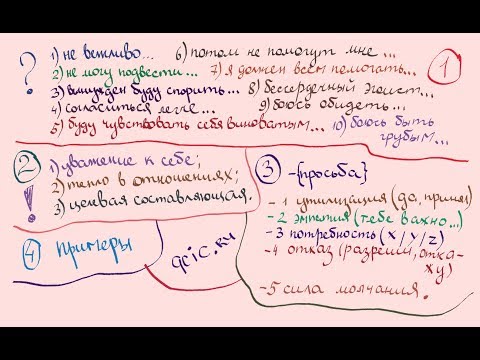 ?
1) не вежливо...
2) не могу подвести...
3) вынужден буду спорить...
4) согласиться легче...
5) буду чувствовать себя виноватым...
6) потом не помогут мне...
7) я должен всем помогать...
8) бессердечный эгоист...
9) боюсь обидеть...
10) боюсь быть
грубым...
1
2
!
1) уважение к себе;
2) тепло в отношениях;
3) целевая составляющая.
3
-{просьба}
- 1 утилизация (да, принял)
- 2 эмпатия (тебе важно...)
- 3 потребность (x/y/z)
- 4 отказ (разреши, отка-
жу)
- 5 сила молчания.
4 примеры
gcic.ru